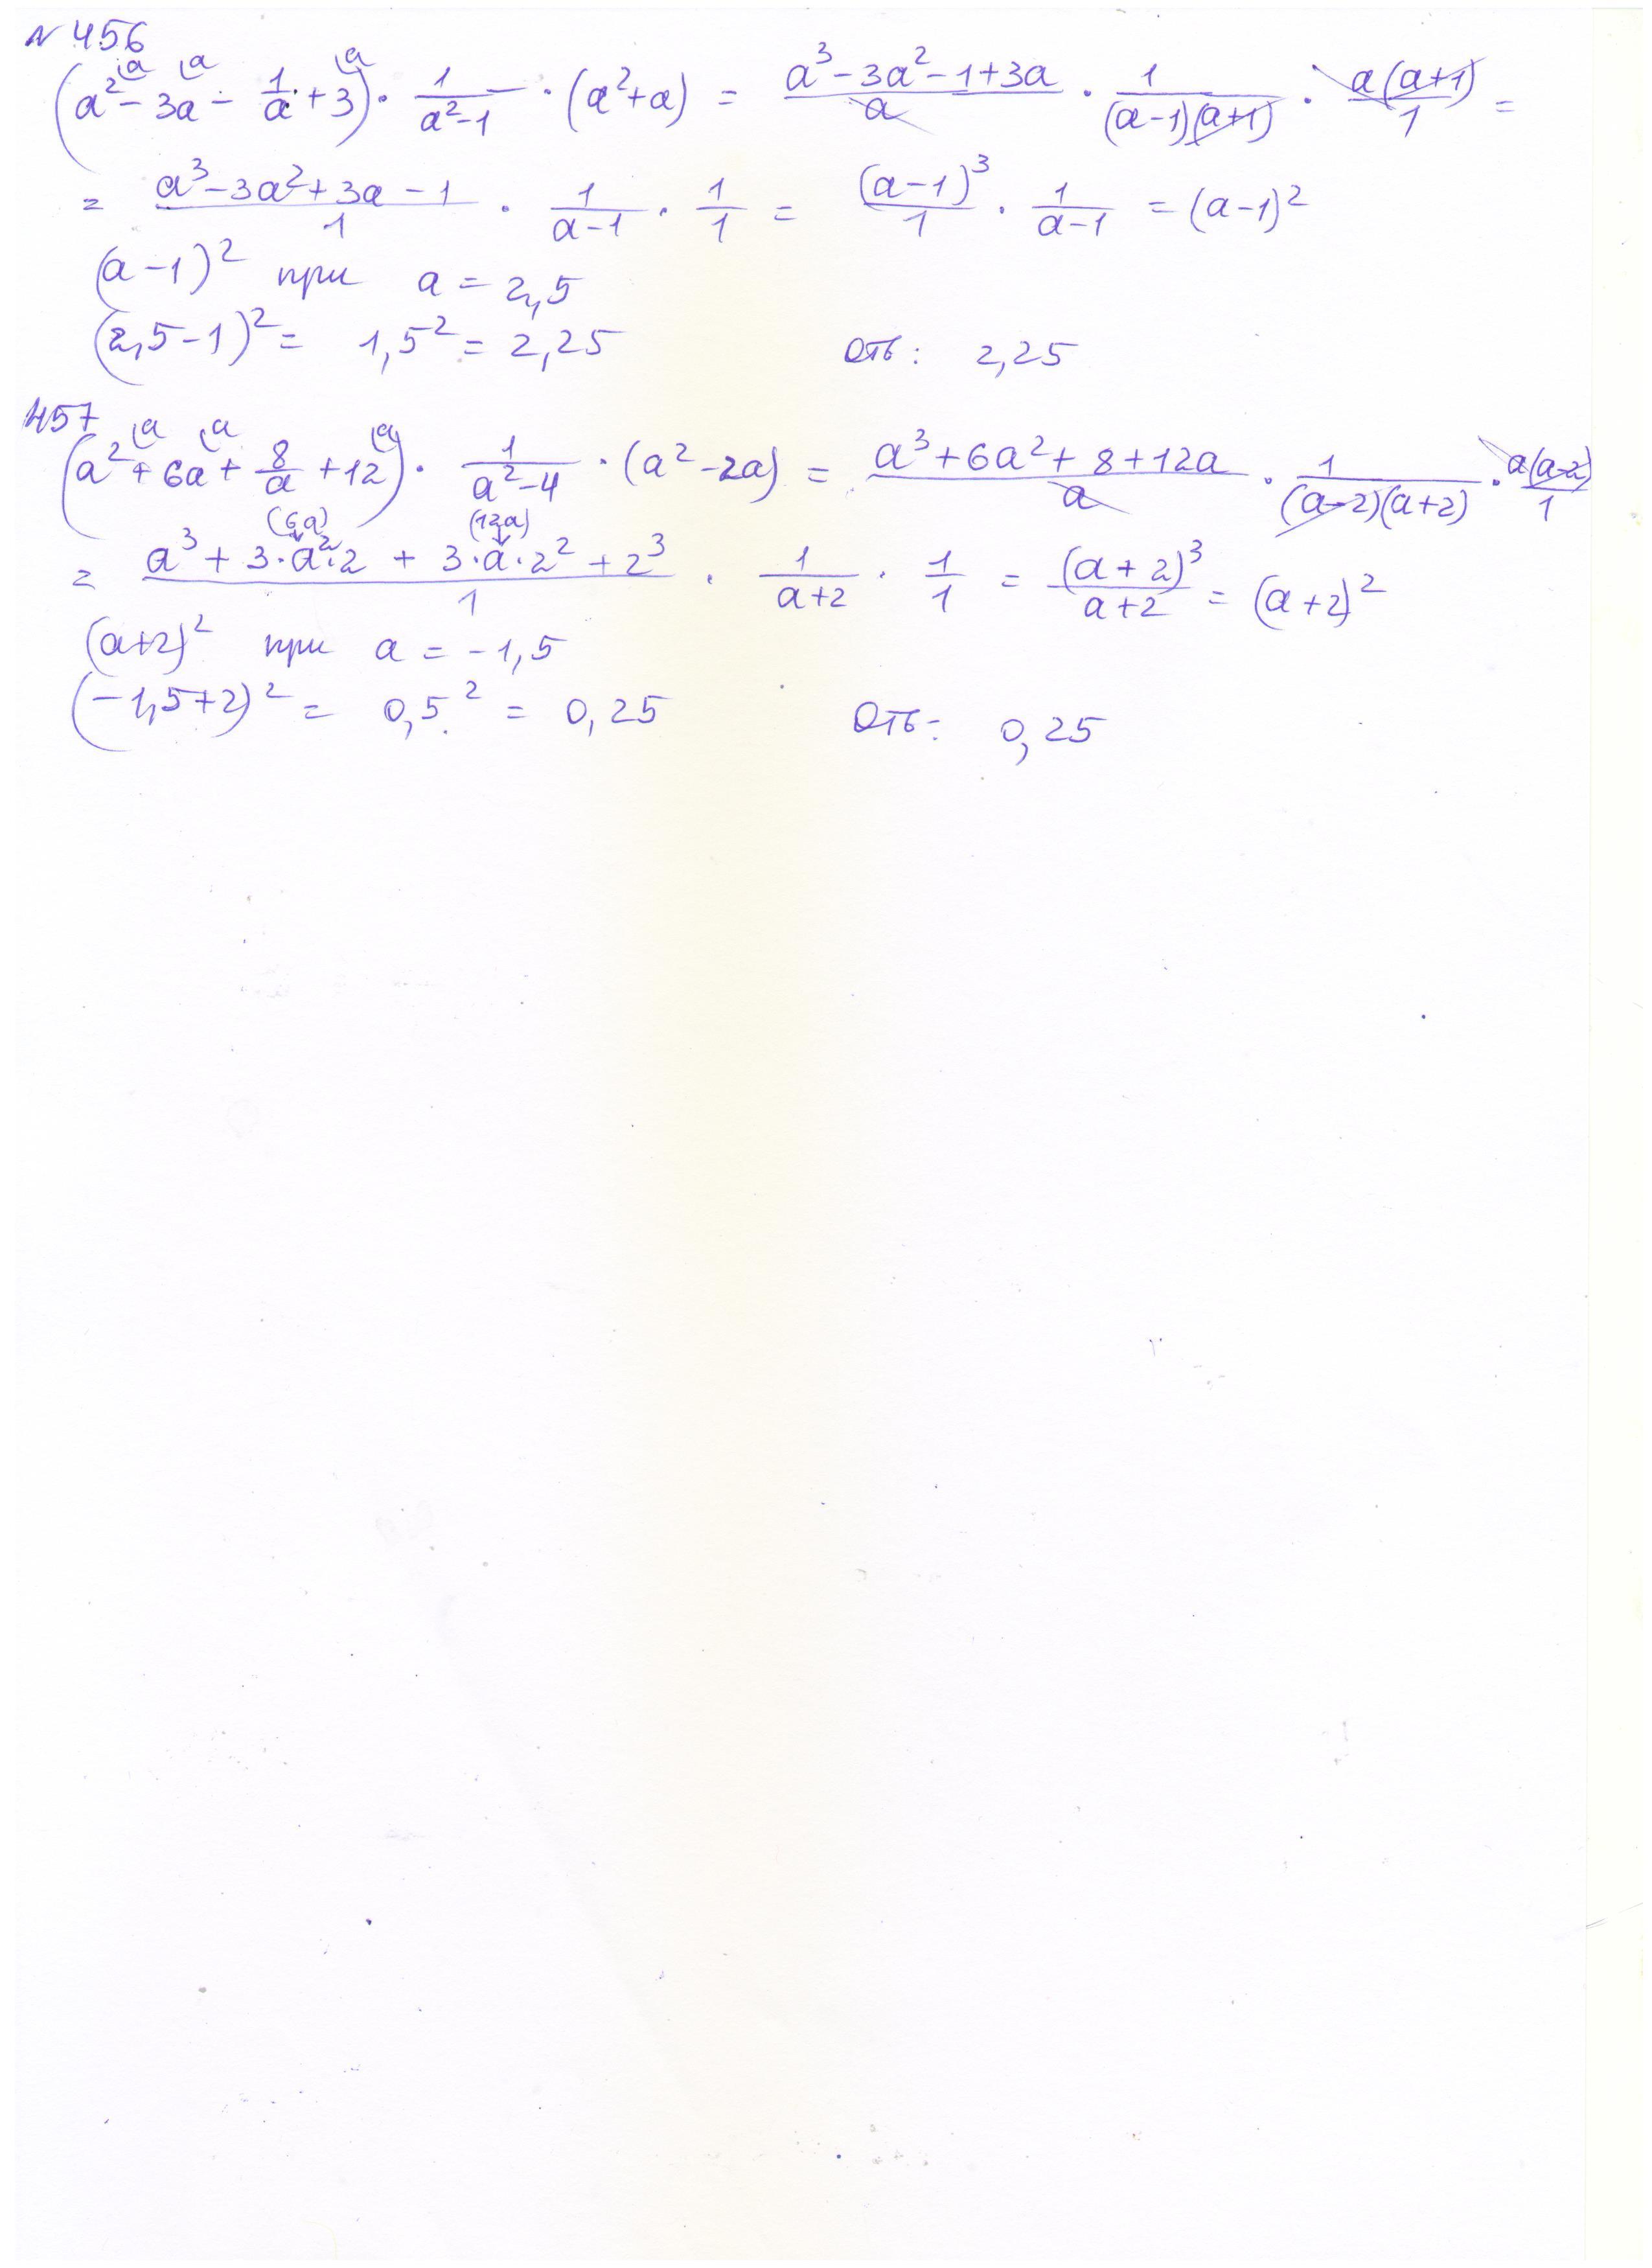 № 456
(a² - 3a - 1/a + 3) · 1/(a²-1) · (a²+a) = (a³-3a²-1+3a)/a · 1/((a-1)(a+1)) · a(a+1)/1 =
= (a³-3a²+3a-1)/1 · 1/(a-1) · 1/1 = (a-1)³/1 · 1/(a-1) = (a-1)²
(a-1)² при a = 2,5
(2,5-1)² = 1,5² = 2,25 Отв: 2,25
457
(a² + 6a + 8/a + 12) · 1/(a²-4) · (a²-2a) = (a³+6a²+8+12a)/a · 1/((a-2)(a+2)) · a(a-2)/1
(6a) (12a)
= (a³ + 3·a²·2 + 3·a·2² + 2³)/1 · 1/(a+2) · 1/1 = (a+2)³/(a+2) = (a+2)²
(a+2)² при a = -1,5
(-1,5+2)² = 0,5² = 0,25 Отв: 0,25